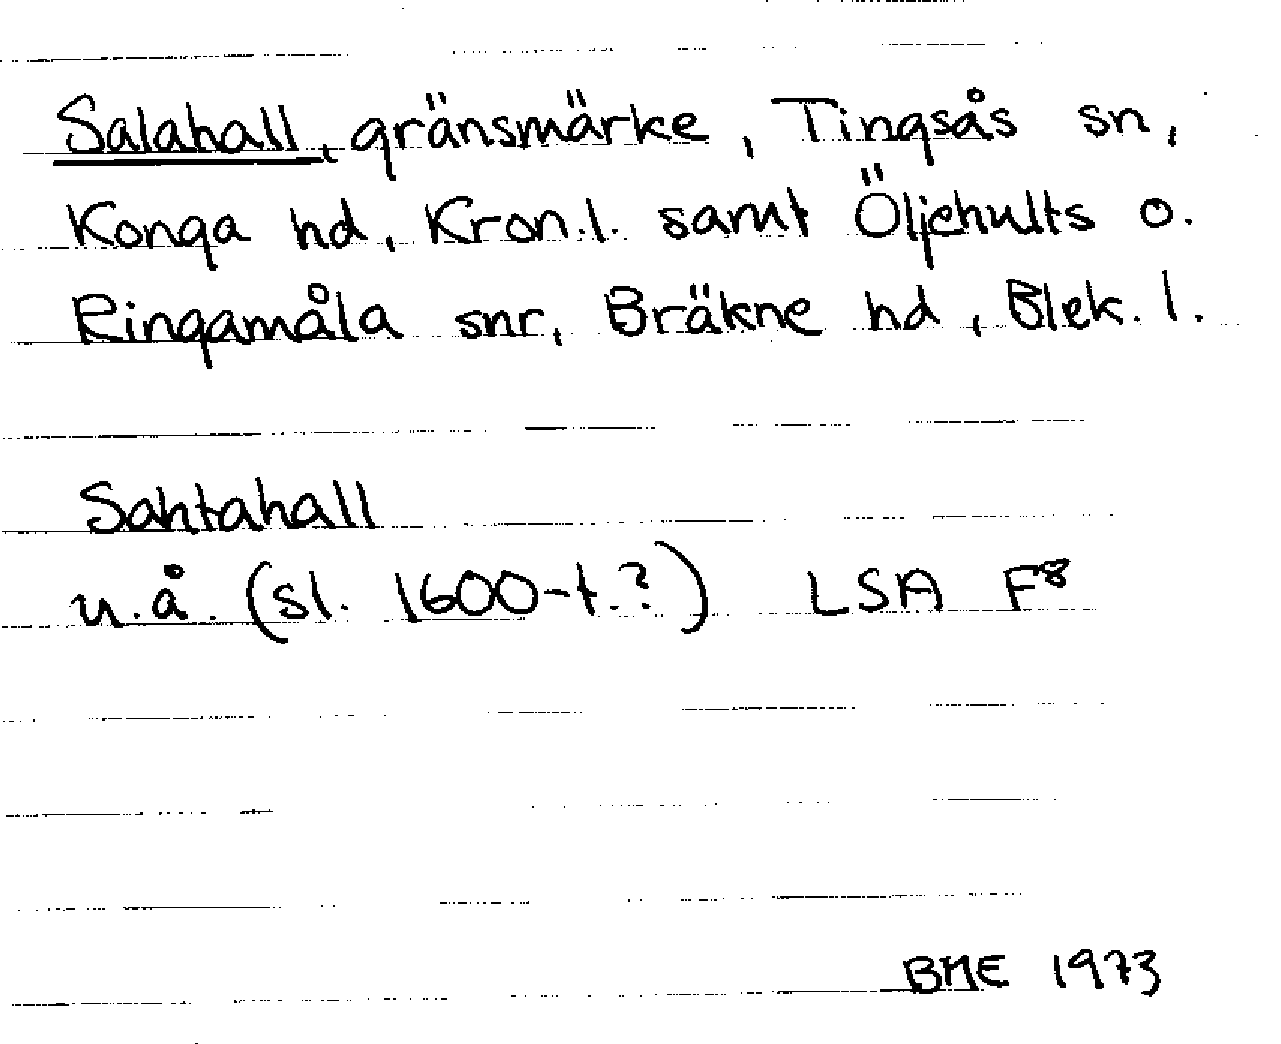 Salahall, gränsmärke, Tingsås sn,
Konga hd, Kron.l. samt Öljehults o.
Ringamåla snr, Bräkne hd, Blek. l.
Sahtahall
u.å. (sl. 1600-t.?) LSA F⁸
BME 1973